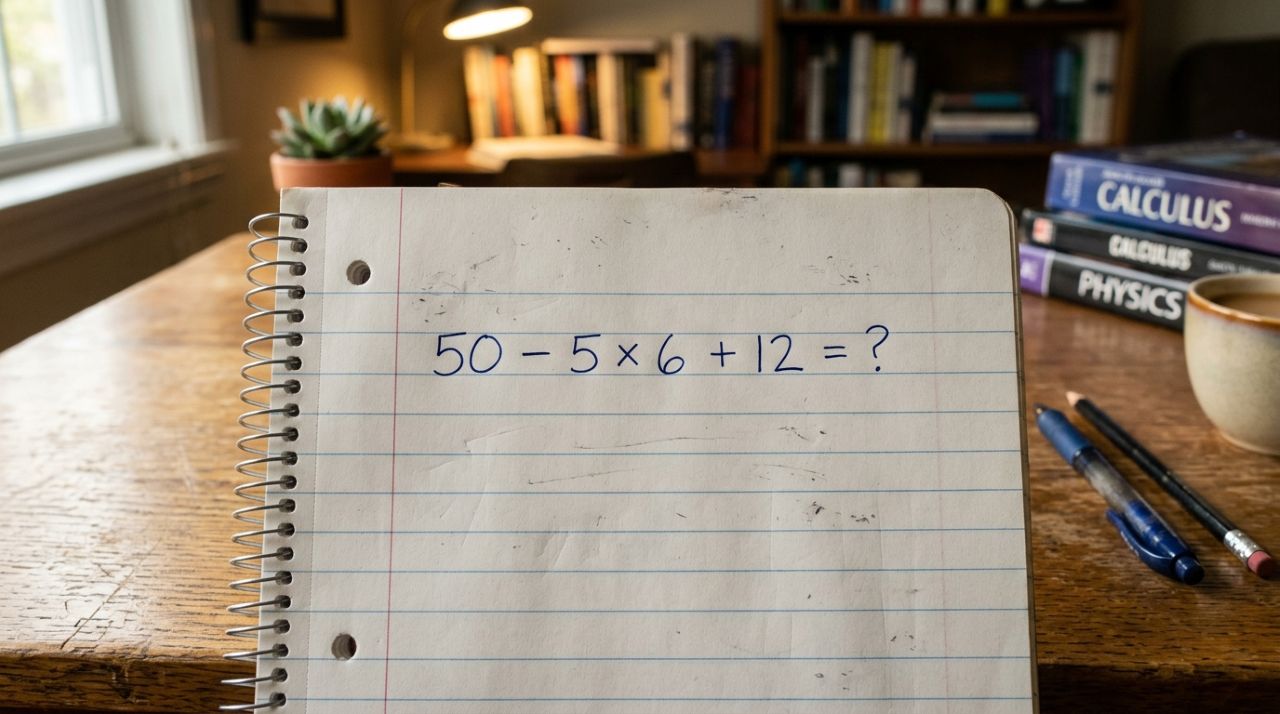 50 − 5 × 6 + 12 = ?
CALCULUS
CALCULUS
PHYSICS